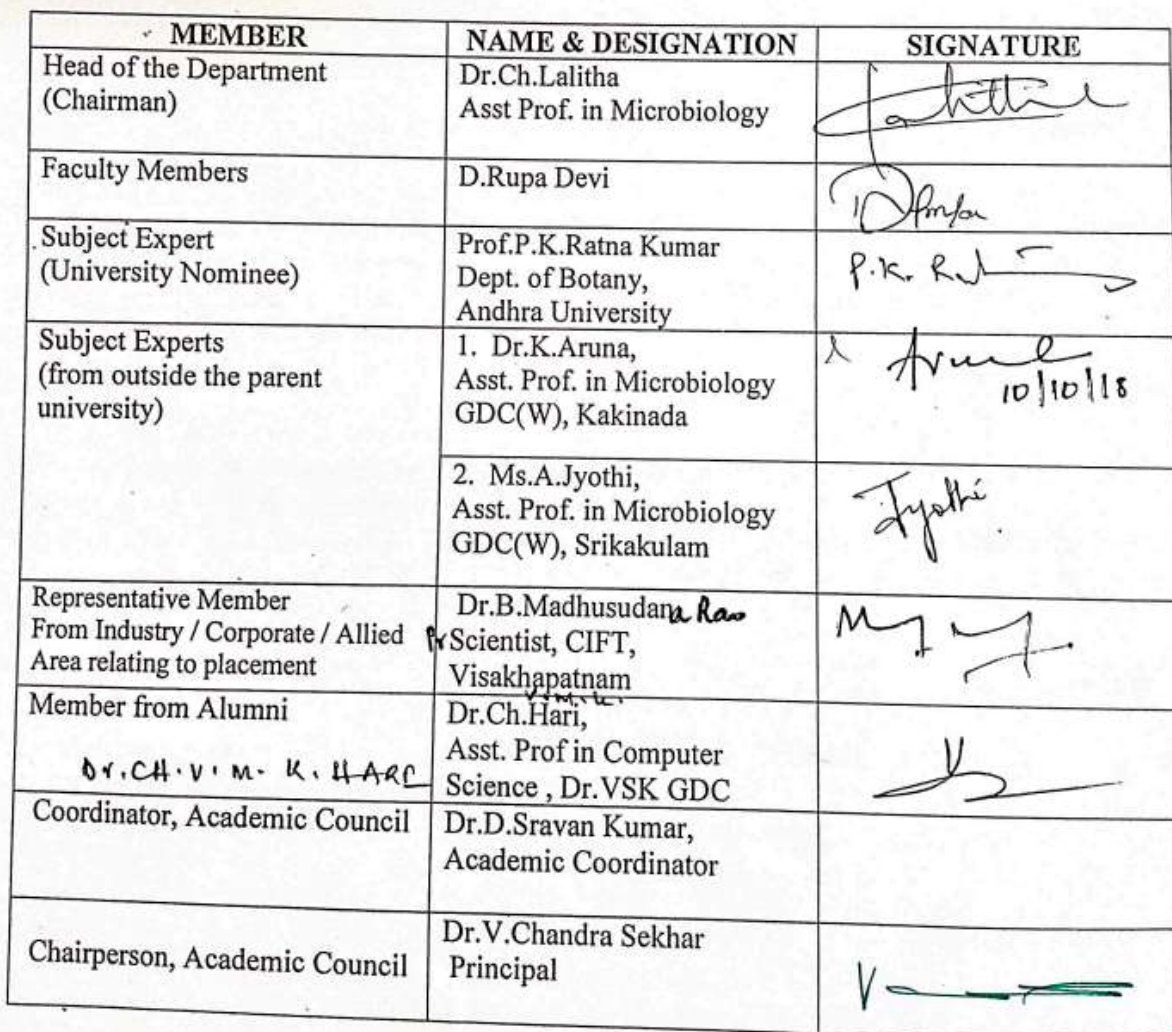 MEMBER NAME & DESIGNATION SIGNATURE
Head of the Department
(Chairman)
Dr.Ch.Lalitha
Asst Prof. in Microbiology
Faculty Members
D.Rupa Devi
Subject Expert
(University Nominee)
Prof.P.K.Ratna Kumar
Dept. of Botany,
Andhra University
P.K. R
Subject Experts
(from outside the parent
university)
1. Dr.K.Aruna,
Asst. Prof. in Microbiology
GDC(W), Kakinada
10/10/18
2. Ms.A.Jyothi,
Asst. Prof. in Microbiology
GDC(W), Srikakulam
Jyothi
Representative Member
From Industry / Corporate / Allied
Area relating to placement
Dr.B.Madhusudana Rao
Pr Scientist, CIFT,
Visakhapatnam
Member from Alumni
Dr.CH.V.M.K.HARI
V.M.K.
Dr.Ch.Hari,
Asst. Prof in Computer
Science , Dr.VSK GDC
Coordinator, Academic Council
Dr.D.Sravan Kumar,
Academic Coordinator
Chairperson, Academic Council
Dr.V.Chandra Sekhar
Principal